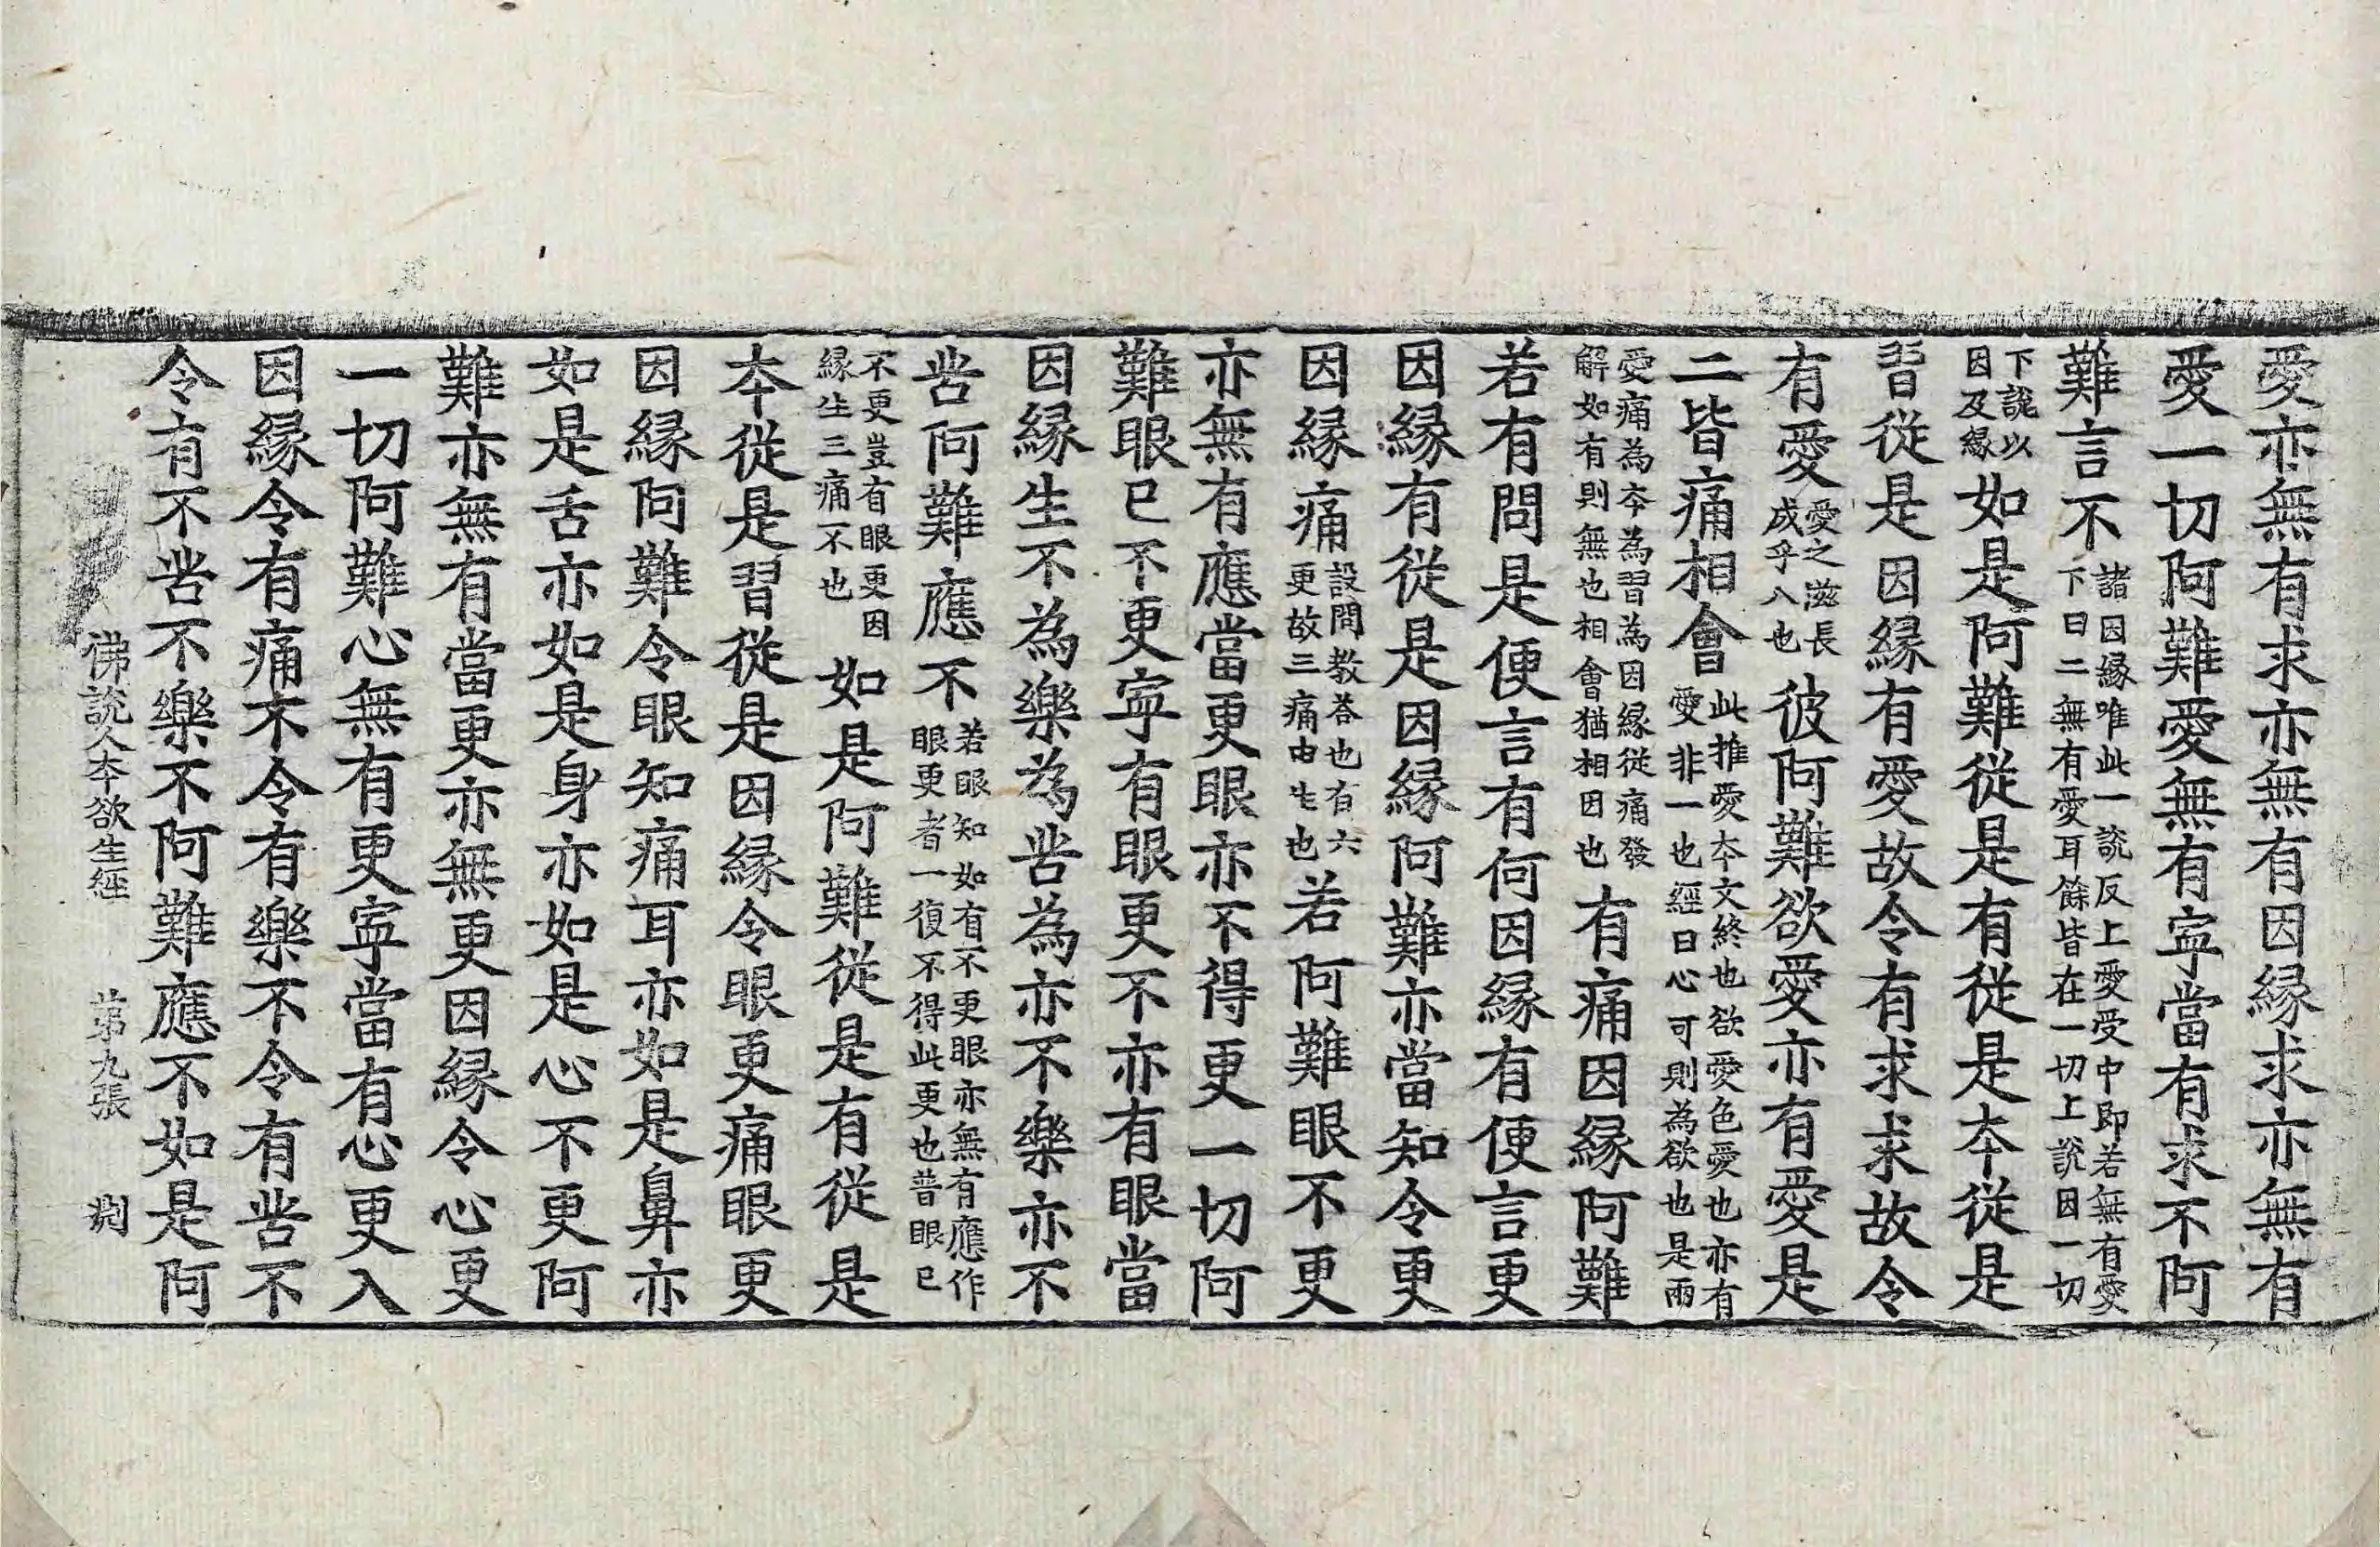 愛亦無有求亦無有因縁求亦無有
愛一切阿難愛無有寧當有求不阿
難言不諸因縁唯此一說反上愛受中即若無有愛下曰二無有愛耳餘皆在一切上說因一切
下說以因及縁如是阿難從是有從是本從是
習從是因縁有愛故令有求求故令
有愛愛之滋長成乎八也彼阿難欲愛亦有愛是
二皆痛相會此推愛本文終也欲愛色愛也亦有愛非一也經曰心可則為欲也是兩
愛痛為本為習為因縁從痛發解如有則無也相會猶相因也有痛因縁阿難
若有問是便言有何因縁有便言更
因縁有從是因縁阿難亦當知令更
因縁痛設問教荅也有六更故三痛由生也若阿難眼不更
亦無有應當更眼亦不得更一切阿
難眼已不更寧有眼更不亦有眼當
因縁生不為樂為苦為亦不樂亦不
苦阿難應不若眼知如有不更眼亦無有應作眼更者一復不得此更也普眼已
不更豈有眼更因縁生三痛不也如是阿難從是有從是
本從是習從是因縁令眼更痛眼更
因縁阿難令眼知痛耳亦如是鼻亦
如是舌亦如是身亦如是心不更阿
難亦無有當更亦無更因縁令心更
一切阿難心無有更寧當有心更入
因縁令有痛不令有樂不令有苦不
令有不苦不樂不阿難應不如是阿
佛說人本欲生經 苐九張